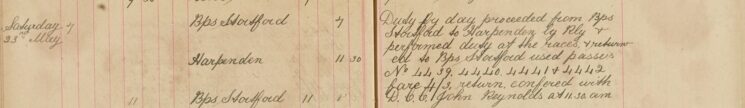 Saturday 7 Bps Stortford 7
23rd May
Harpenden 11 30
11 Bps Stortford 11
Duty by day proceeded from Bps
Stortford to Harpenden by Rly &
performed duty at the races & return
ed to Bps Stortford used passes
No 4439, 4440, 4441 & 4442
fare 4/3, return, confered with
D.C.C. John Reynolds at 11.30 am